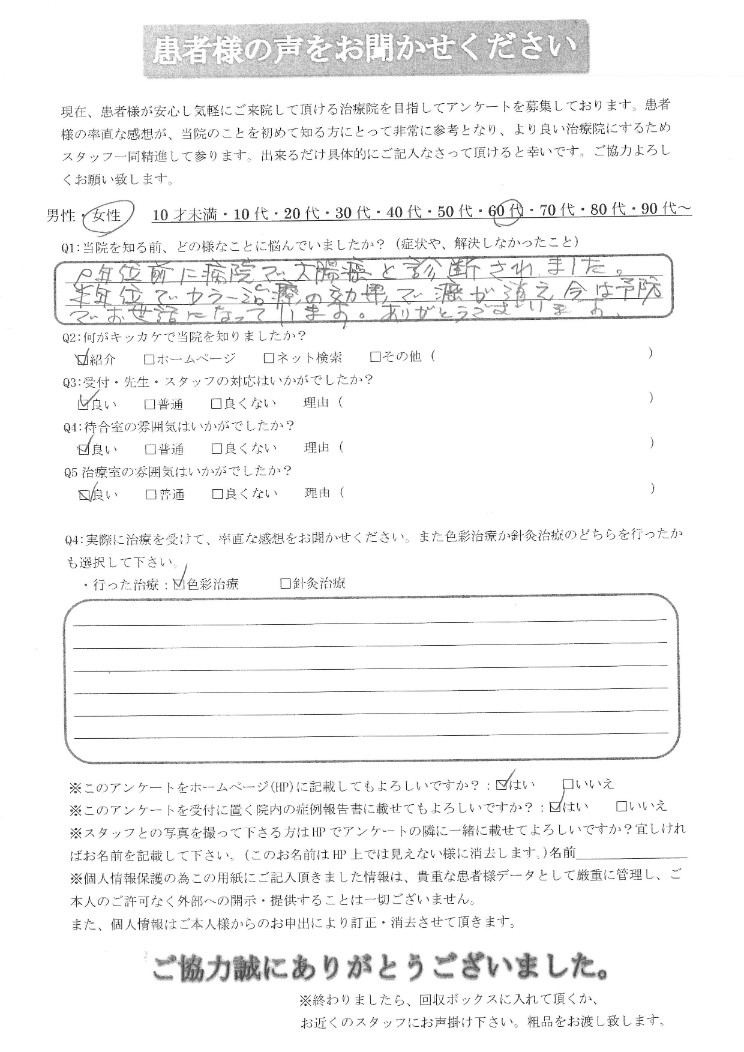 患者様の声をお聞かせください
現在、患者様が安心し気軽にご来院して頂ける治療院を目指してアンケートを募集しております。患者
様の率直な感想が、当院のことを初めて知る方にとって非常に参考となり、より良い治療院にするため
スタッフ一同精進して参ります。出来るだけ具体的にご記入なさって頂けると幸いです。ご協力よろし
くお願い致します。
男性・女性 10才未満・10代・20代・30代・40代・50代・60代・70代・80代・90代～
Q1:当院を知る前、どの様なことに悩んでいましたか？（症状や、解決しなかったこと）
年位前に病院で大腸癌と診断されました。
半年位でカラー治療の効果で癌が消え今は予防
でお世話になっています。ありがとうございます。
Q2:何がキッカケで当院を知りましたか？
☑紹介 □ホームページ □ネット検索 □その他（ ）
Q3:受付・先生・スタッフの対応はいかがでしたか？
☑良い □普通 □良くない 理由（ ）
Q4:待合室の雰囲気はいかがでしたか？
☑良い □普通 □良くない 理由（ ）
Q5 治療室の雰囲気はいかがでしたか？
☑良い □普通 □良くない 理由（ ）
Q4:実際に治療を受けて、率直な感想をお聞かせください。また色彩治療か針灸治療のどちらを行ったか
も選択して下さい。
・行った治療：☑色彩治療 □針灸治療
※このアンケートをホームページ(HP)に記載してもよろしいですか？：☑はい □いいえ
※このアンケートを受付に置く院内の症例報告書に載せてもよろしいですか？：☑はい □いいえ
※スタッフとの写真を撮って下さる方はHPでアンケートの隣に一緒に載せてよろしいですか？宜しけれ
ばお名前を記載して下さい。（このお名前はHP上では見えない様に消去します。）名前
※個人情報保護の為この用紙にご記入頂きました情報は、貴重な患者様データとして厳重に管理し、ご
本人のご許可なく外部への開示・提供することは一切ございません。
また、個人情報はご本人様からのお申出により訂正・消去させて頂きます。
ご協力誠にありがとうございました。
※終わりましたら、回収ボックスに入れて頂くか、
お近くのスタッフにお声掛け下さい。粗品をお渡し致します。